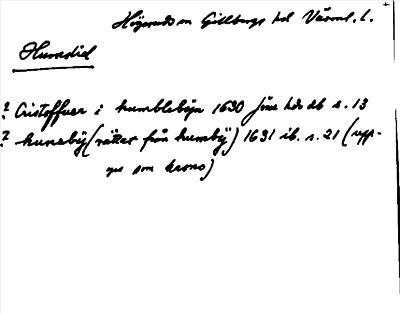 Högerud sn Gillbergs hd Värml. l.
Humsdiel
? Cristoffuer i humblebÿn 1630 Jöne hds db s. 13
? hunebÿ (rättat från humbÿ) 1631 ib. s. 21 (upp-
ges som krono)